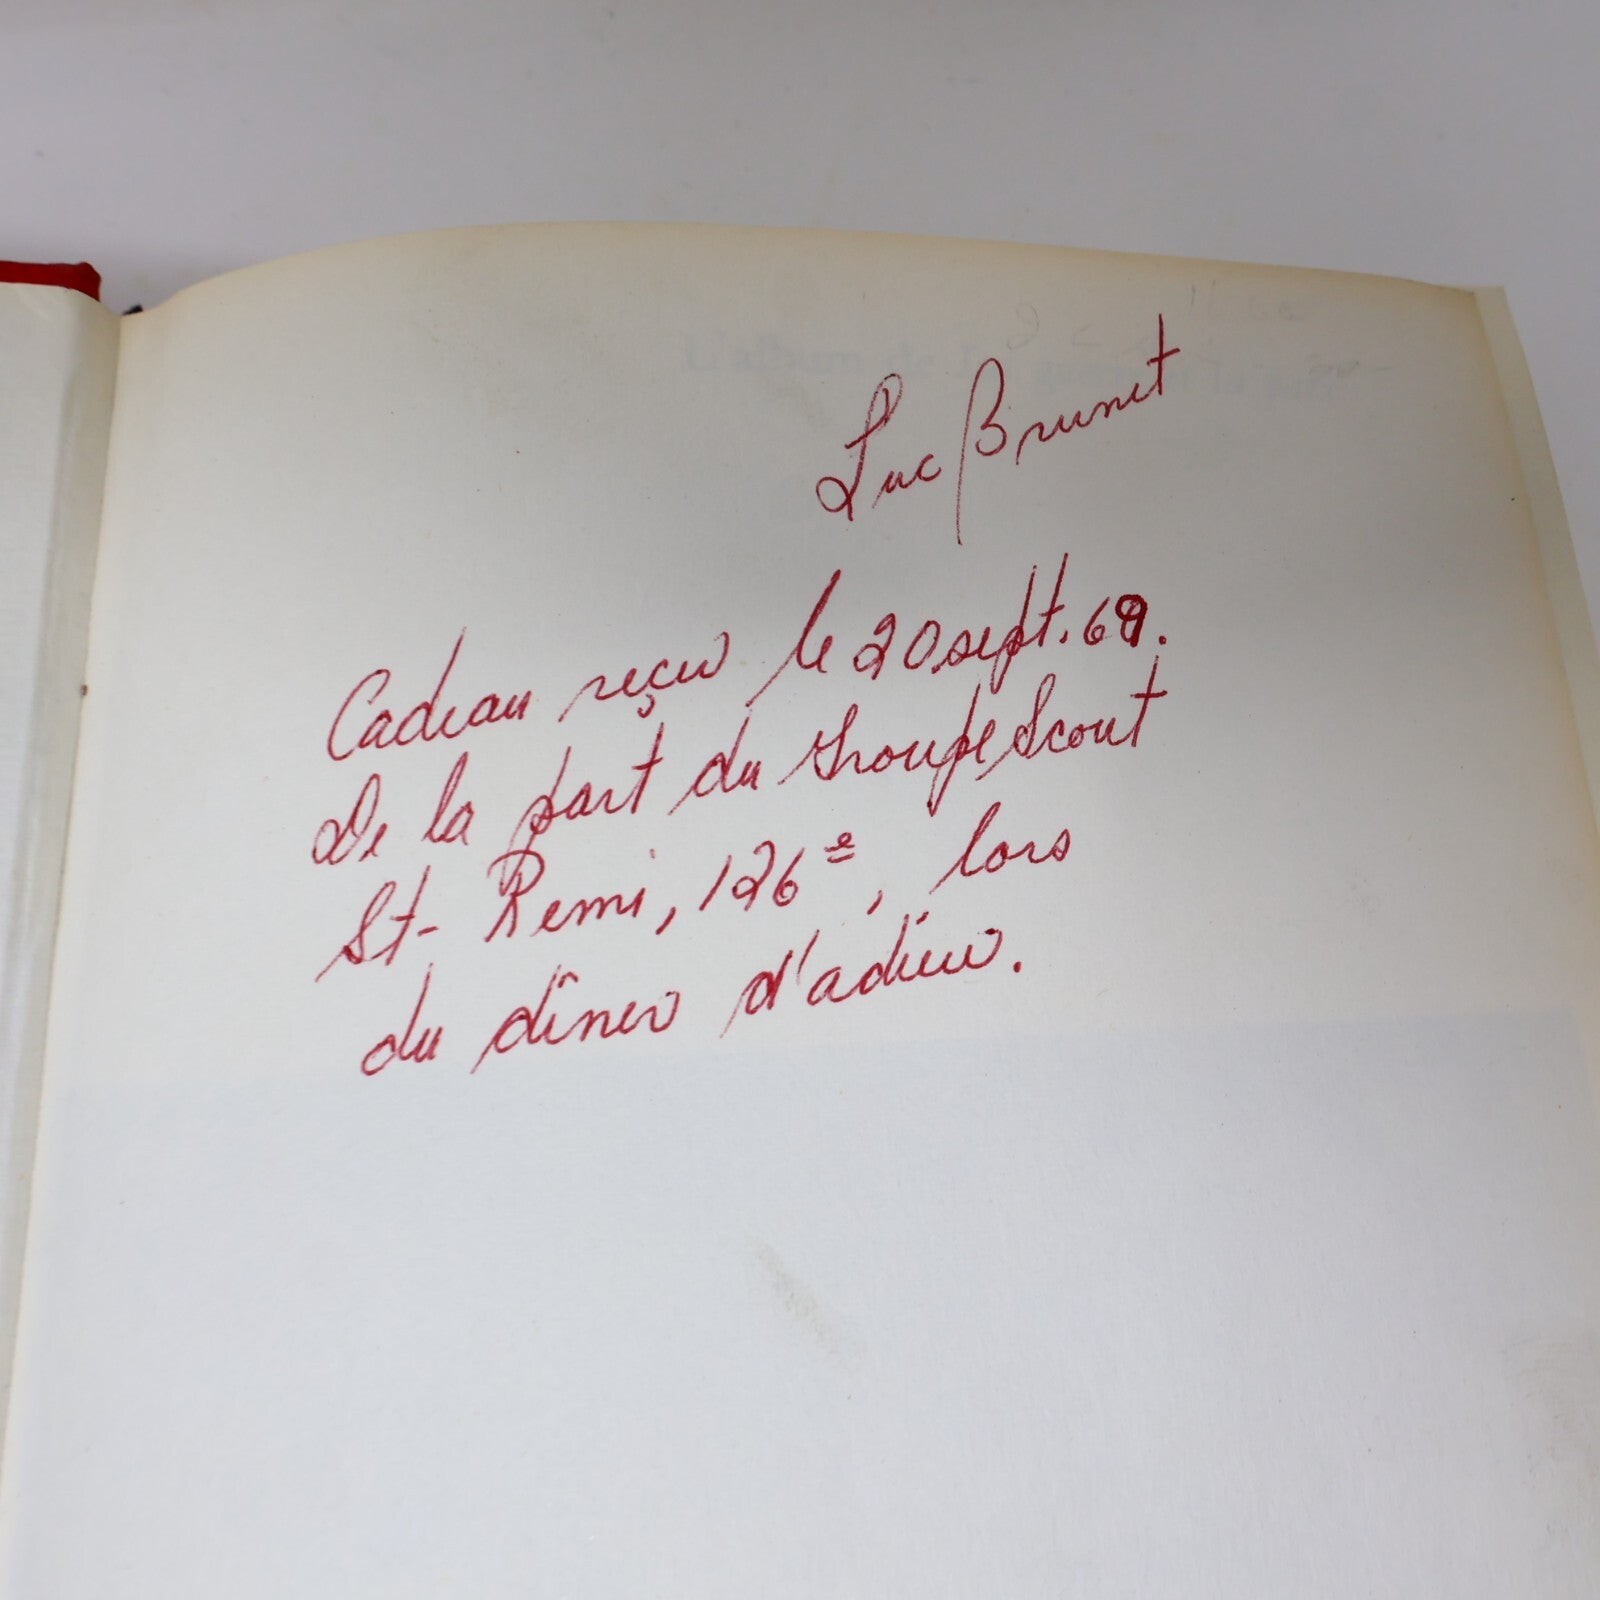 Luc Brunet
Cadeau reçu le 20 sept. 69.
De la part du Groupe Scout
St-Remi, 126e, lors
du dîner d'adieu.
L'album de